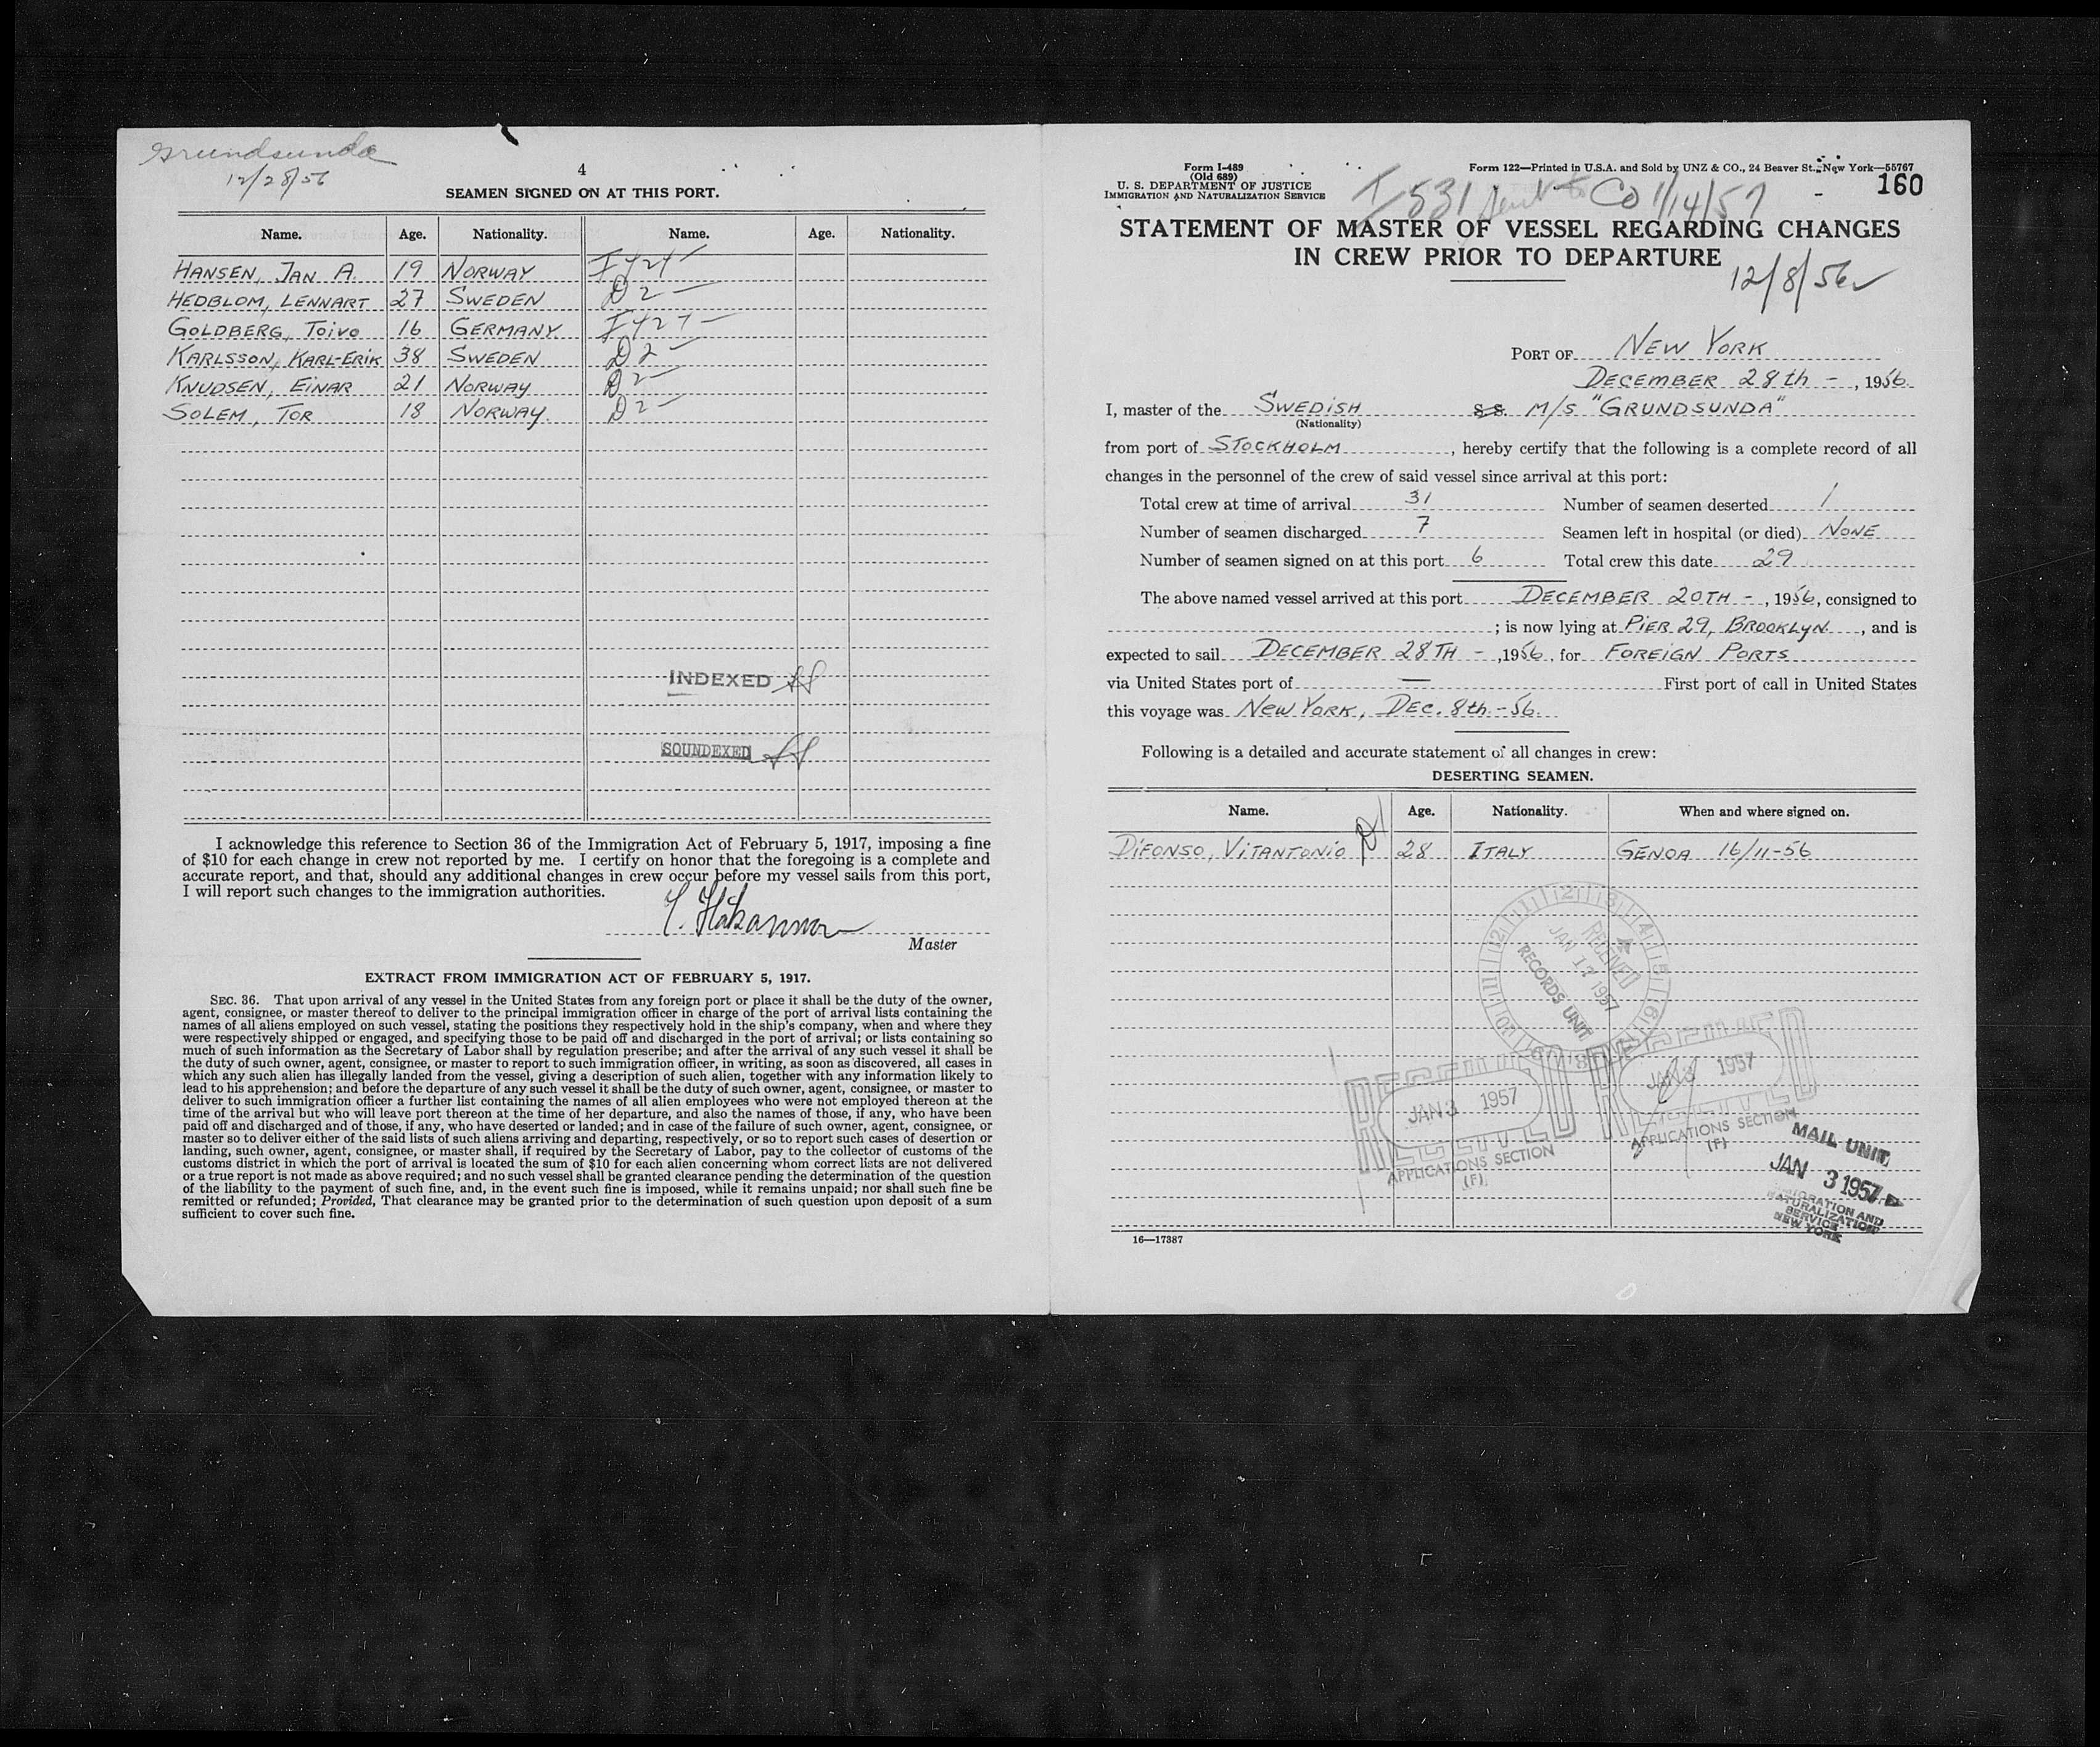 Grundsunda
12/28/56
4
SEAMEN SIGNED ON AT THIS PORT.
Name. Age. Nationality. Name. Age. Nationality.
HANSEN, JAN A. 19 NORWAY
HEDBLOM, LENNART 27 SWEDEN D2
GOLDBERG, TOIVO 16 GERMANY.
KARLSSON, KARL-ERIK 38 SWEDEN D2
KNUDSEN, EINAR 21 NORWAY D2
SOLEM, TOR 18 NORWAY. D2
INDEXED
SOUNDEXED
I acknowledge this reference to Section 36 of the Immigration Act of February 5, 1917, imposing a fine
of $10 for each change in crew not reported by me. I certify on honor that the foregoing is a complete and
accurate report, and that, should any additional changes in crew occur before my vessel sails from this port,
I will report such changes to the immigration authorities.
Master
EXTRACT FROM IMMIGRATION ACT OF FEBRUARY 5, 1917.
SEC. 36. That upon arrival of any vessel in the United States from any foreign port or place it shall be the duty of the owner,
agent, consignee, or master thereof to deliver to the principal immigration officer in charge of the port of arrival lists containing the
names of all aliens employed on such vessel, stating the positions they respectively hold in the ship's company, when and where they
were respectively shipped or engaged, and specifying those to be paid off and discharged in the port of arrival; or lists containing so
much of such information as the Secretary of Labor shall by regulation prescribe; and after the arrival of any such vessel it shall be
the duty of such owner, agent, consignee, or master to report to such immigration officer, in writing, as soon as discovered, all cases in
which any such alien has illegally landed from the vessel, giving a description of such alien, together with any information likely to
lead to his apprehension; and before the departure of any such vessel it shall be the duty of such owner, agent, consignee, or master to
deliver to such immigration officer a further list containing the names of all alien employees who were not employed thereon at the
time of the arrival but who will leave port thereon at the time of her departure, and also the names of those, if any, who have been
paid off and discharged and of those, if any, who have deserted or landed; and in case of the failure of such owner, agent, consignee, or
master so to deliver either of the said lists of such aliens arriving and departing, respectively, or so to report such cases of desertion or
landing, such owner, agent, consignee, or master shall, if required by the Secretary of Labor, pay to the collector of customs of the
customs district in which the port of arrival is located the sum of $10 for each alien concerning whom correct lists are not delivered
or a true report is not made as above required; and no such vessel shall be granted clearance pending the determination of the question
of the liability to the payment of such fine, and, in the event such fine is imposed, while it remains unpaid; nor shall such fine be
remitted or refunded; Provided, That clearance may be granted prior to the determination of such question upon deposit of a sum
sufficient to cover such fine.
Form I-489
(Old 689)
U. S. DEPARTMENT OF JUSTICE
IMMIGRATION AND NATURALIZATION SERVICE
Form 122—Printed in U.S.A. and Sold by UNZ & CO., 24 Beaver St., New York—55767
160
I/531 sent to CO 1/14/57
STATEMENT OF MASTER OF VESSEL REGARDING CHANGES
IN CREW PRIOR TO DEPARTURE
12/8/56
PORT OF NEW YORK
DECEMBER 28th - , 1956.
I, master of the SWEDISH S.S. M/S "GRUNDSUNDA"
(Nationality)
from port of STOCKHOLM , hereby certify that the following is a complete record of all
changes in the personnel of the crew of said vessel since arrival at this port:
Total crew at time of arrival 31 Number of seamen deserted 1
Number of seamen discharged 7 Seamen left in hospital (or died) NONE
Number of seamen signed on at this port 6 Total crew this date 29
The above named vessel arrived at this port DECEMBER 20TH - , 1956, consigned to
; is now lying at PIER 29, BROOKLYN , and is
expected to sail DECEMBER 28TH - , 1956, for FOREIGN PORTS
via United States port of — First port of call in United States
this voyage was NEW YORK, DEC. 8th - 56.
Following is a detailed and accurate statement of all changes in crew:
DESERTING SEAMEN.
Name. Age. Nationality. When and where signed on.
DIFONSO, VITANTONIO 28 ITALY GENOA 16/11-56
RECEIVED
JAN 17 1957
RECORDS UNIT
RECEIVED
JAN 3 1957
APPLICATIONS SECTION
(F)
RECEIVED
JAN 3 1957
APPLICATIONS SECTION
(F)
MAIL UNIT
JAN 3 1957
IMMIGRATION AND
NATURALIZATION
SERVICE
NEW YORK
16—17387